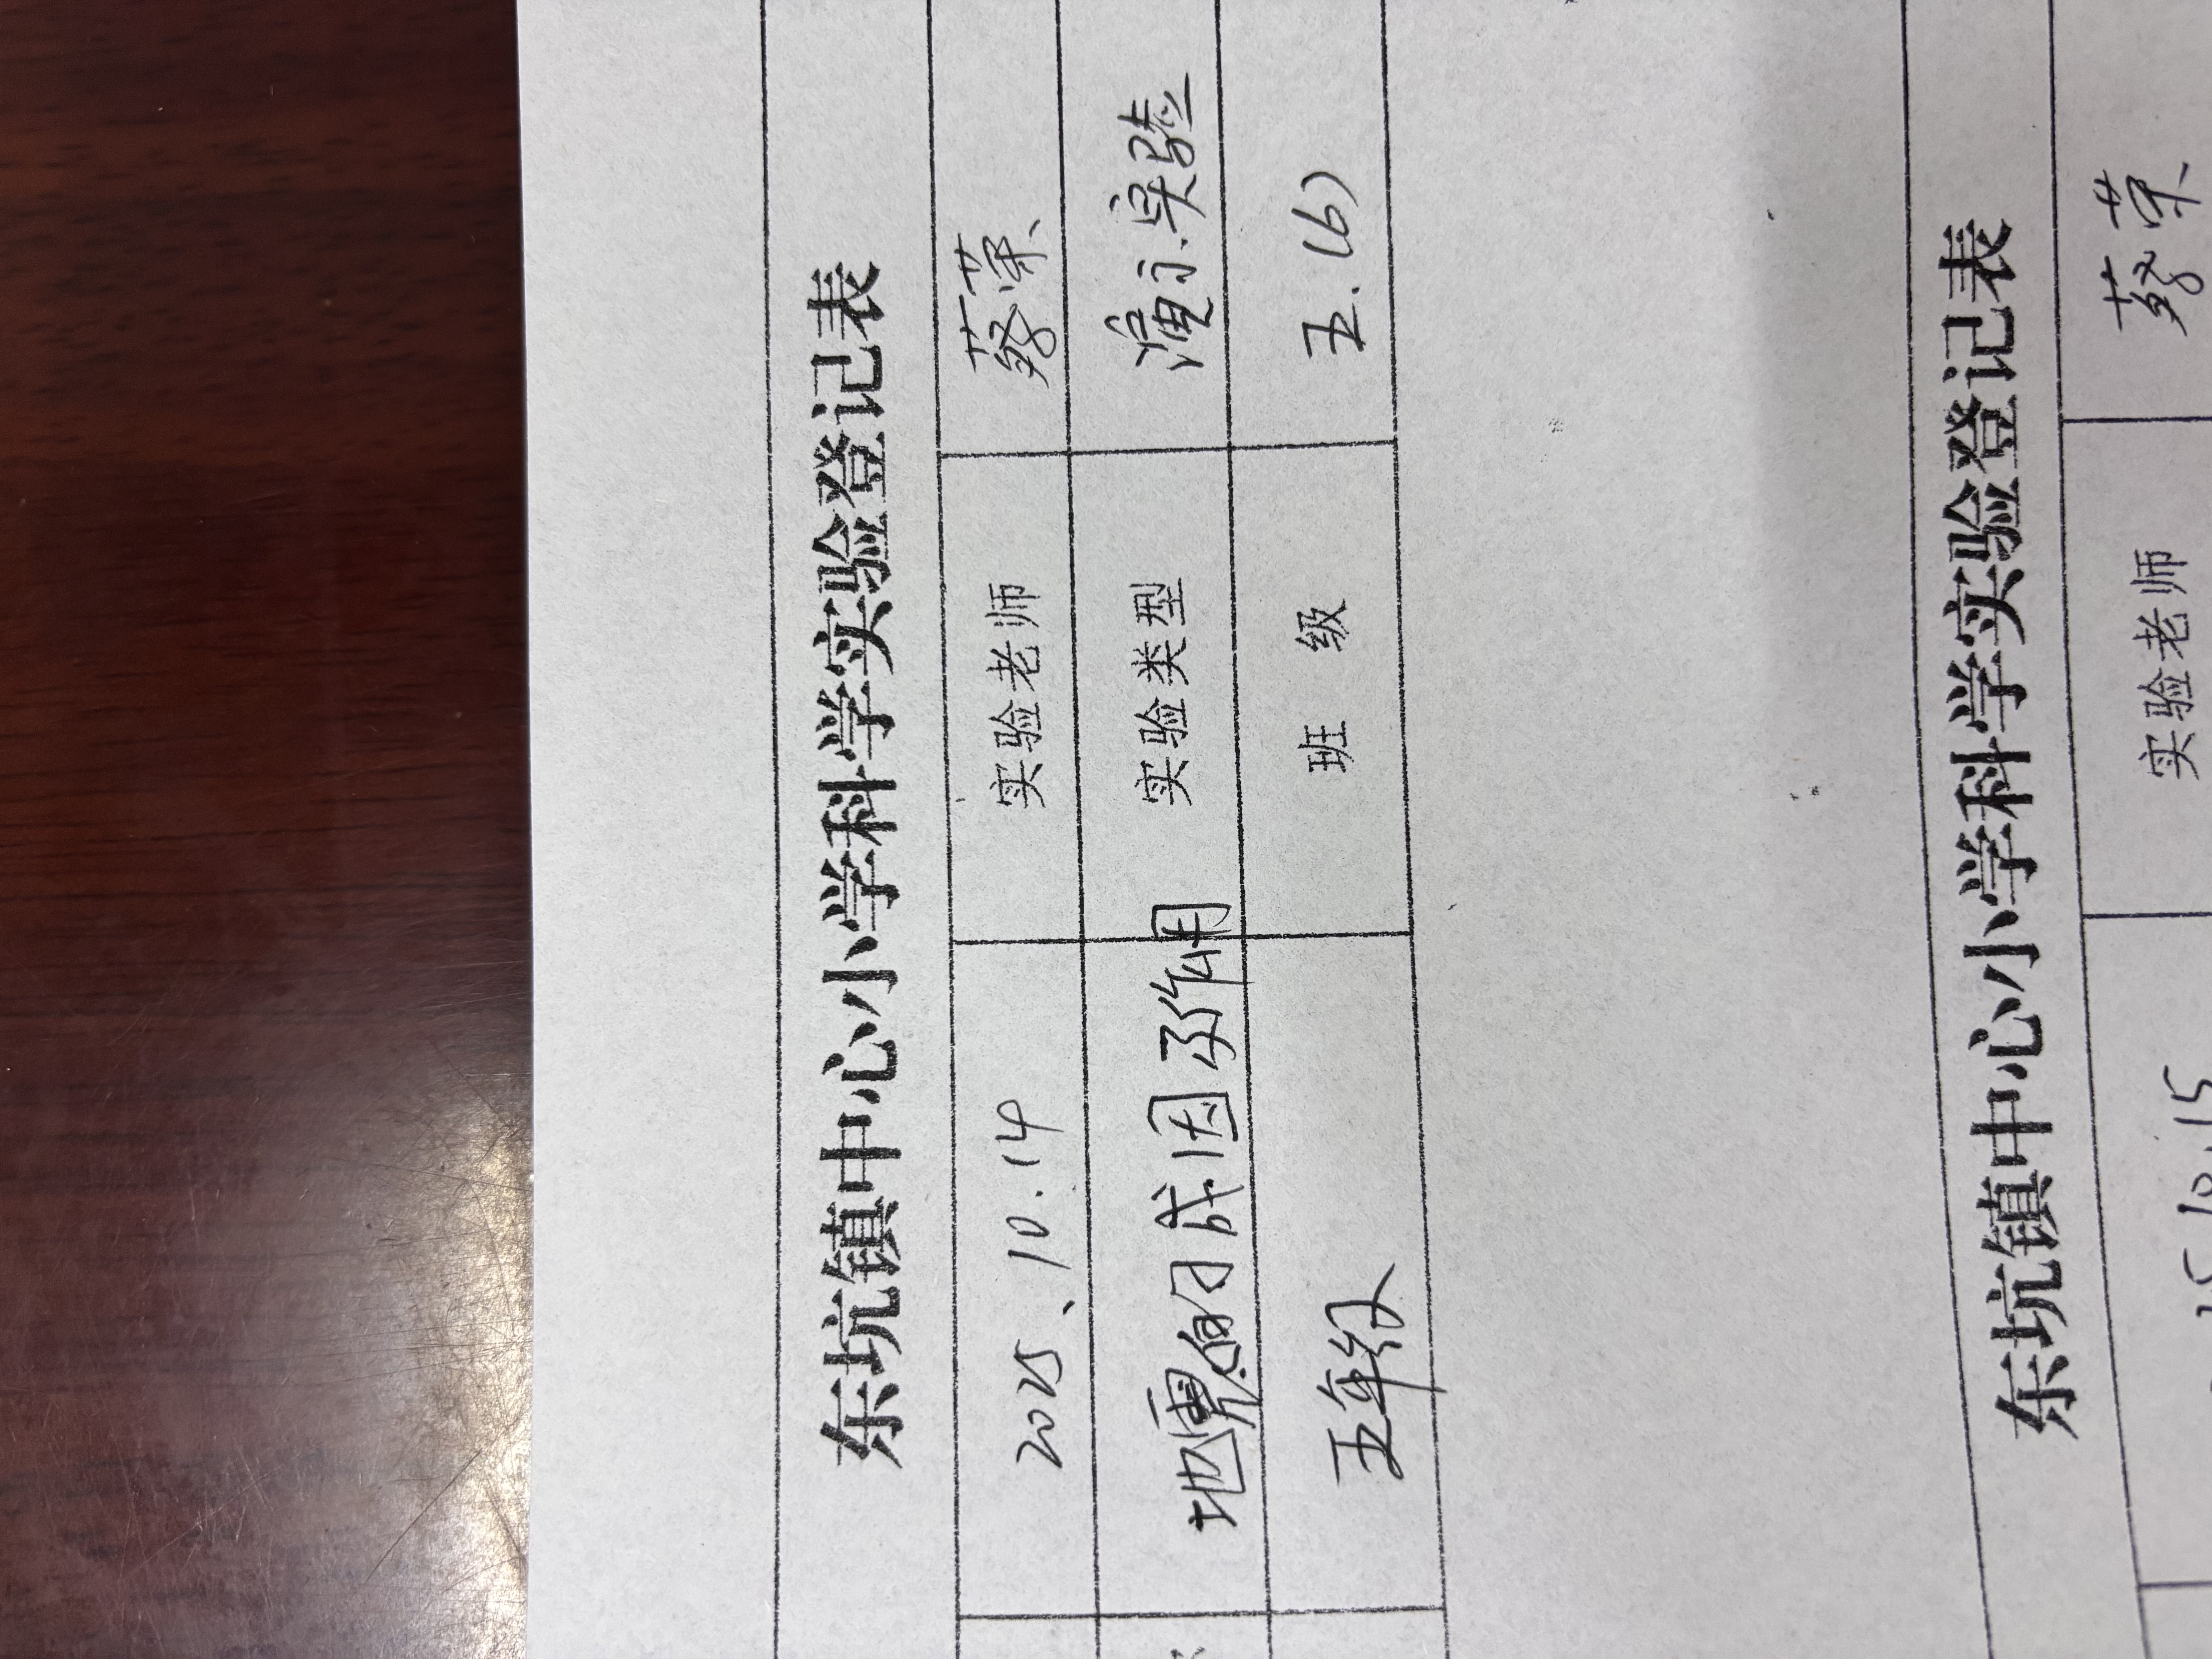 东坑镇中心小学科学实验登记表
2025、10.14 实验老师 蔡荣
地震的成因及作用 实验类型 演示实验
五年级 班 级 五.(6)
东坑镇中心小学科学实验登记表
10.15 实验老师 蔡荣